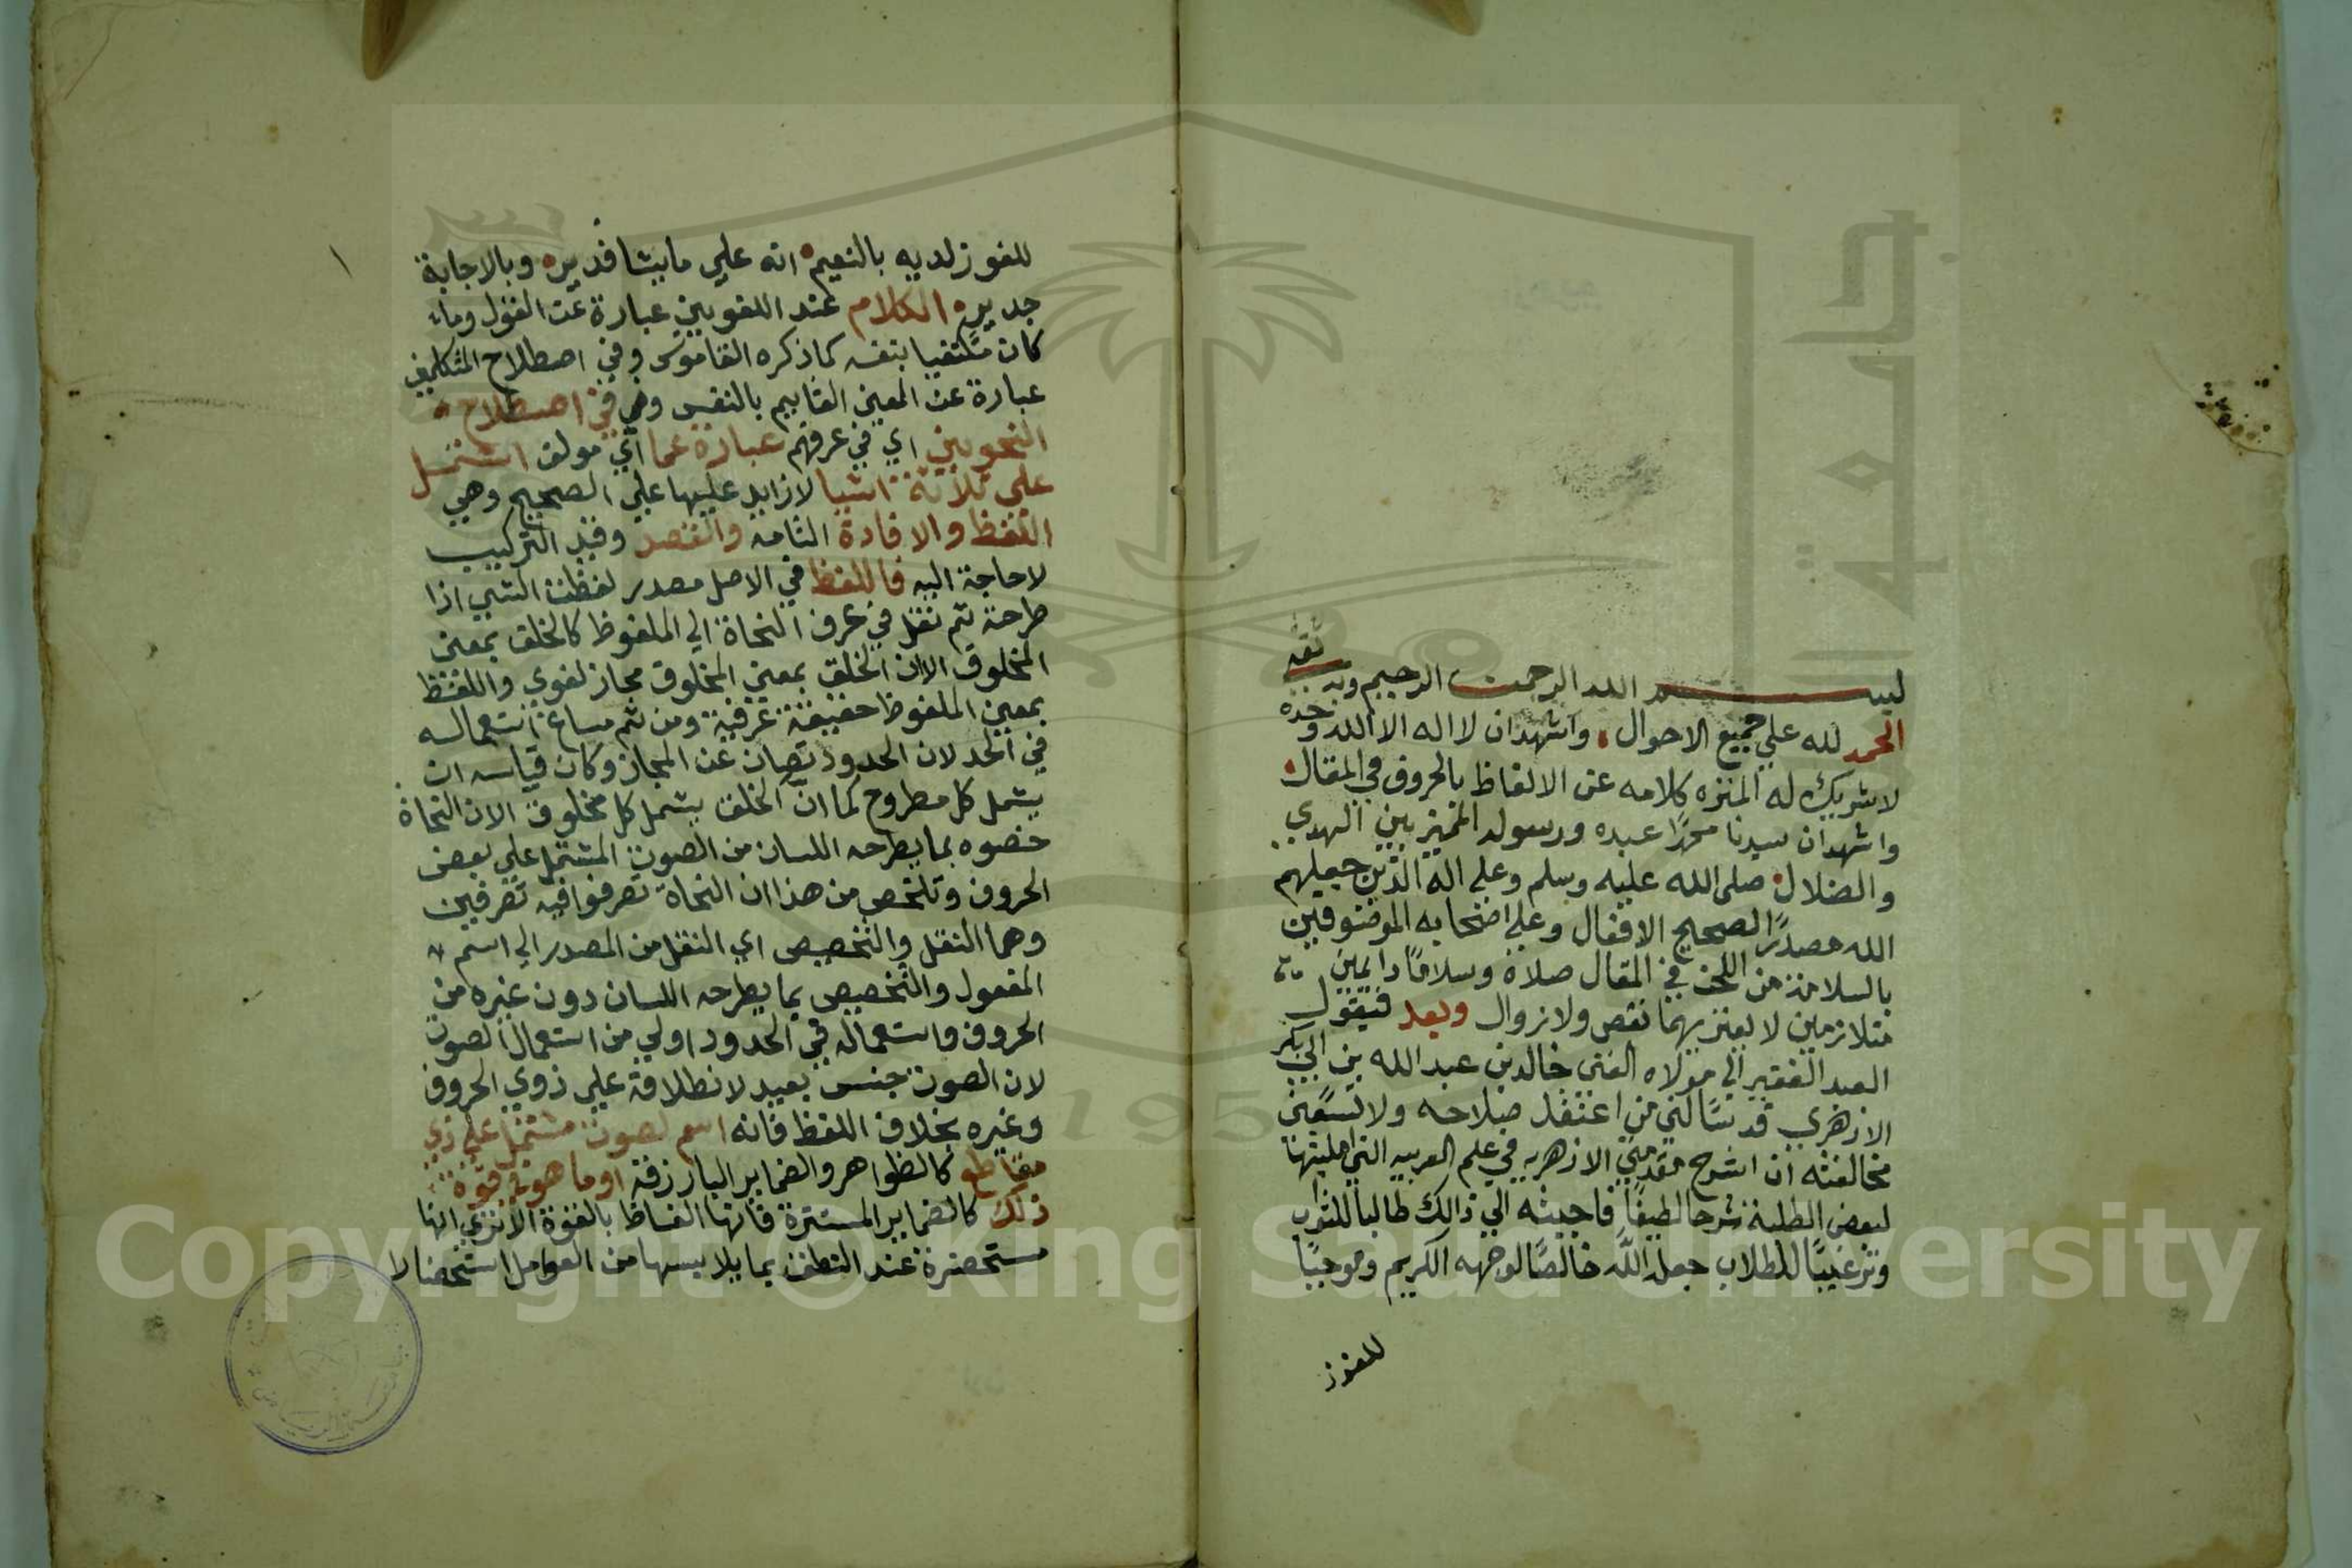 بسم الله الرحمن الرحيم وبه ثقه
الحمد لله علي جميع الاحوال واشهد ان لا اله الا الله وحده
لا شريك له المنزه كلامه عن الالفاظ بالحروف في المقال
واشهد ان سيدنا محمدا عبده ورسوله المميز بين الهدي
والضلال صلى الله عليه وسلم وعلي اله الذين جعلهم
الله مصدرا لصحيح الافعال وعلي اصحابه الموصوفين
بالسلامة من اللحن في المقال صلاة وسلاما دايمين
متلازمين لا يعتريهما نقص ولا زوال وبعد فيقول
العبد الفقير الي مولاه الغني خالد بن عبد الله بن ابي بكر
الازهري قد سالني من اعتقد صلاحه ولا تسعني
مخالفته ان اشرح مقدمتي الازهريه في علم العربيه التي امليتها
لبعض الطلبة شرحا لطيفا فاجبته الي ذالك طالبا للثواب
وترغيبا للطلاب جعله الله خالصا لوجهه الكريم وموجبا
للفوز
١
للفوز لديه بالنعيم انه علي ما يشا قدير وبالاجابة
جدير الكلام عند اللغويين عبارة عن القول وما
كان مكتفيا بنفسه كما ذكره القاموس وفي اصطلاح المتكلمين
عبارة عن المعني القايم بالنفس وهو في اصطلاح
النحويين اي في عرفهم عبارة عما اي مولف اشتمل
علي ثلاثة اشيا لا زايد عليها علي الصحيح وهي
اللفظ والافادة التامه والقصد وقيد التركيب
لا حاجة اليه فاللفظ في الاصل مصدر لفظت الشي اذا
طرحته ثم نقل في عرف النحاة الي الملفوظ كالخلق بمعني
المخلوق الا ان الخلق بمعني المخلوق مجاز لغوي واللفظ
بمعني الملفوظ حقيقة عرفية ومن ثم ساغ استعماله
في الحد لان الحدود تصان عن المجاز وكان قياسه ان
يشمل كل مطروح كما ان الخلق يشمل كل مخلوق الا ان النحاة
خصوه بما يطرحه اللسان من الصوت المشتمل علي بعض
الحروف وتلخص من هذا ان النحاة تصرفوا فيه تصرفين
وهما النقل والتخصيص اي النقل من المصدر الي اسم
المفعول والتخصيص بما يطرحه اللسان دون غيره من
الحروف واستعماله في الحدود اولي من استعمال الصوت
لان الصوت جنس بعيد لانطلاقه علي ذوي الحروف
وغيره بخلاف اللفظ فانه اسم لصوت مشتمل علي ذي
مقاطع كالظواهر والضماير البارزة او ما هو في قوة
ذلك كالضماير المستترة فانها الفاظ بالقوة الا تري انها
مستحضرة عند النطق بما يلابسها من العوامل استحضارا
Copyright © King Saud University
جامعة
195